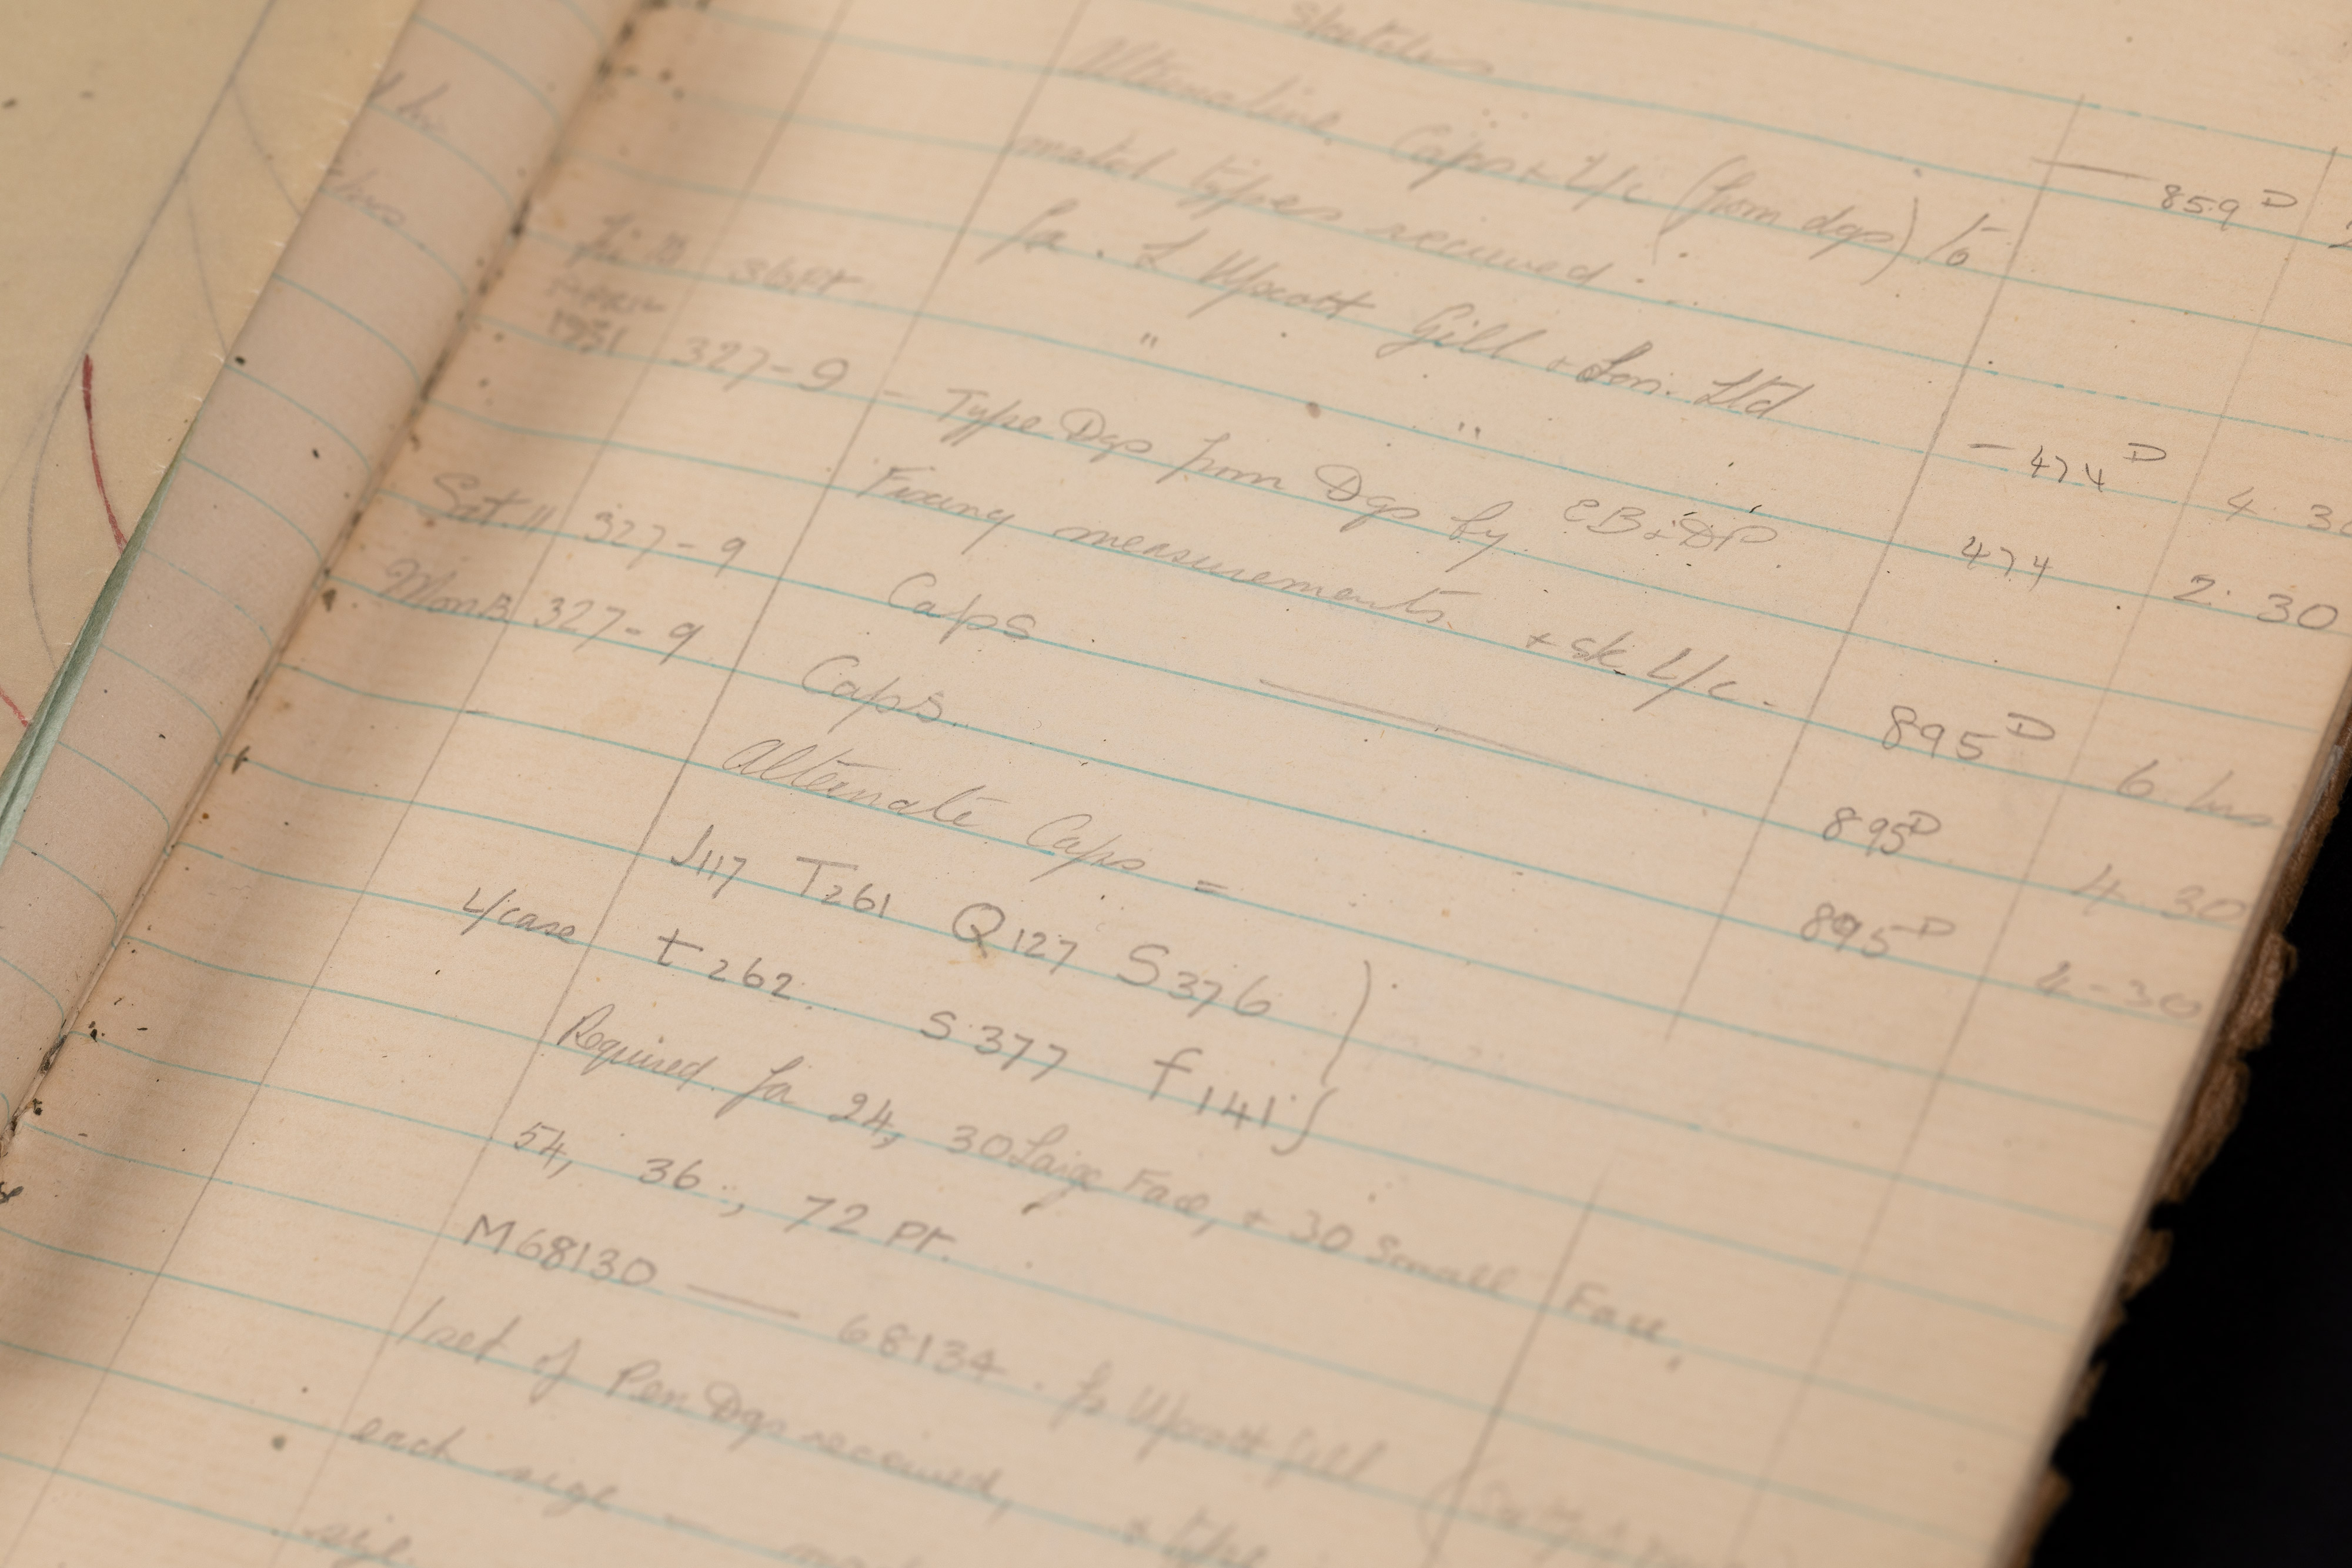 sketches
Caps + L/c (from dgs) to — 859 D
match types received
for. L Upcott Gill & Son. Ltd — 474 D 4 3
36pt " " 474 2. 30
1931 327-9 - Type Dgs from Dgs by EB & DP
Fixing measurements + sk. L/c. 895 D 6 hrs
Sat. 11 327-9 Caps 895 D 4 30
Mon 13 327-9 Caps. 895 D 4-30
Alternate Caps =
J117 T261 Q127 S376
L/case t262. s377 f141
Required for 24, 30 Large Face, + 30 Small Face,
54, 36, 72 pt.
M68130 — 68134. for Upcott Gill
1 set of Pen Dgs received, + type
each size —
size